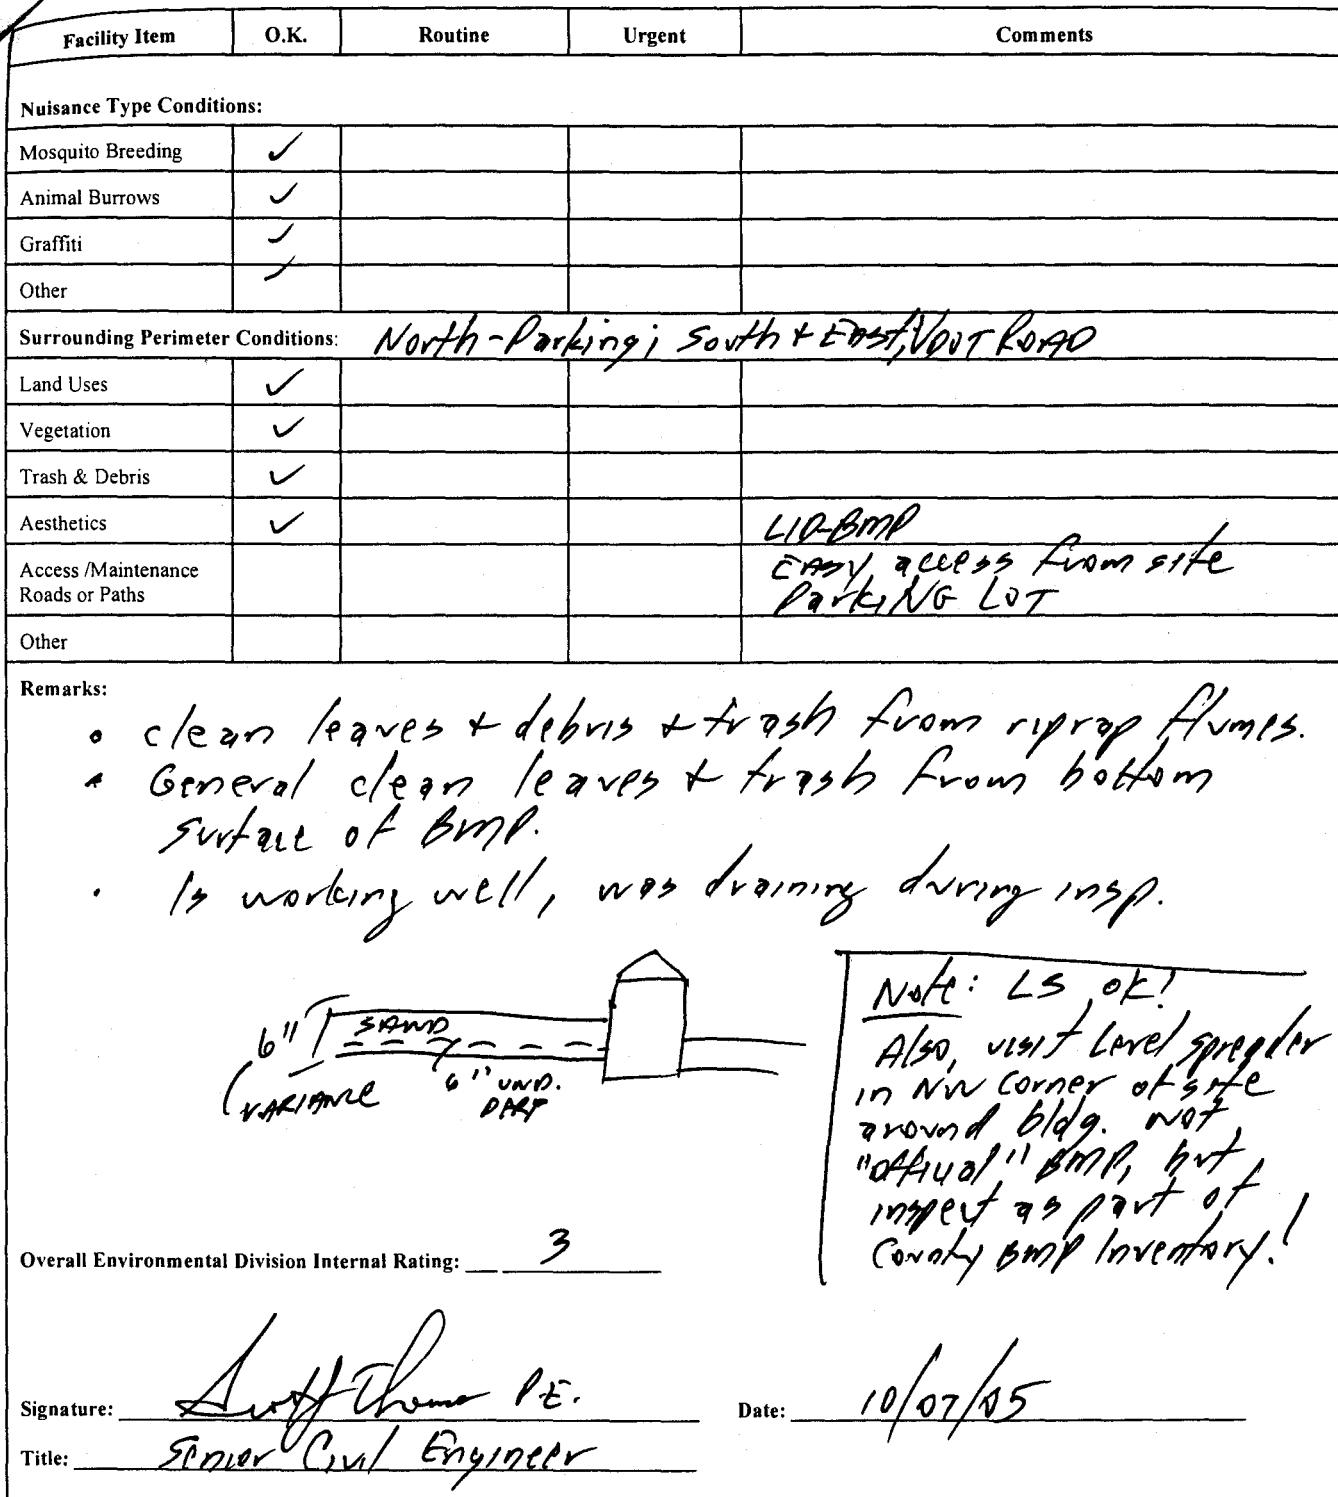 Facility Item O.K. Routine Urgent Comments
Nuisance Type Conditions:
Mosquito Breeding ✓
Animal Burrows ✓
Graffiti ✓
Other ✓
Surrounding Perimeter Conditions: North-Parking; South + East, VDOT ROAD
Land Uses ✓
Vegetation ✓
Trash & Debris ✓
Aesthetics ✓ LID-BMP
Access /Maintenance
Roads or Paths
EASY access from site
ParkiNG LOT
Other
Remarks:
• clean leaves + debris + trash from riprap flumes.
• General clean leaves + trash from bottom
surface of BMP.
• Is working well, was draining during insp.
6" SAND
VARIANCE
6" UND.
Note: LS ok!
Also, visit Level Spreader
in NW Corner of site
around bldg. Not
"official" BMP, but
inspect as part of
County BMP Inventory!
Overall Environmental Division Internal Rating: 3
Signature: Scott Thomas P.E.
Date: 10/07/05
Title: Senior Civil Engineer